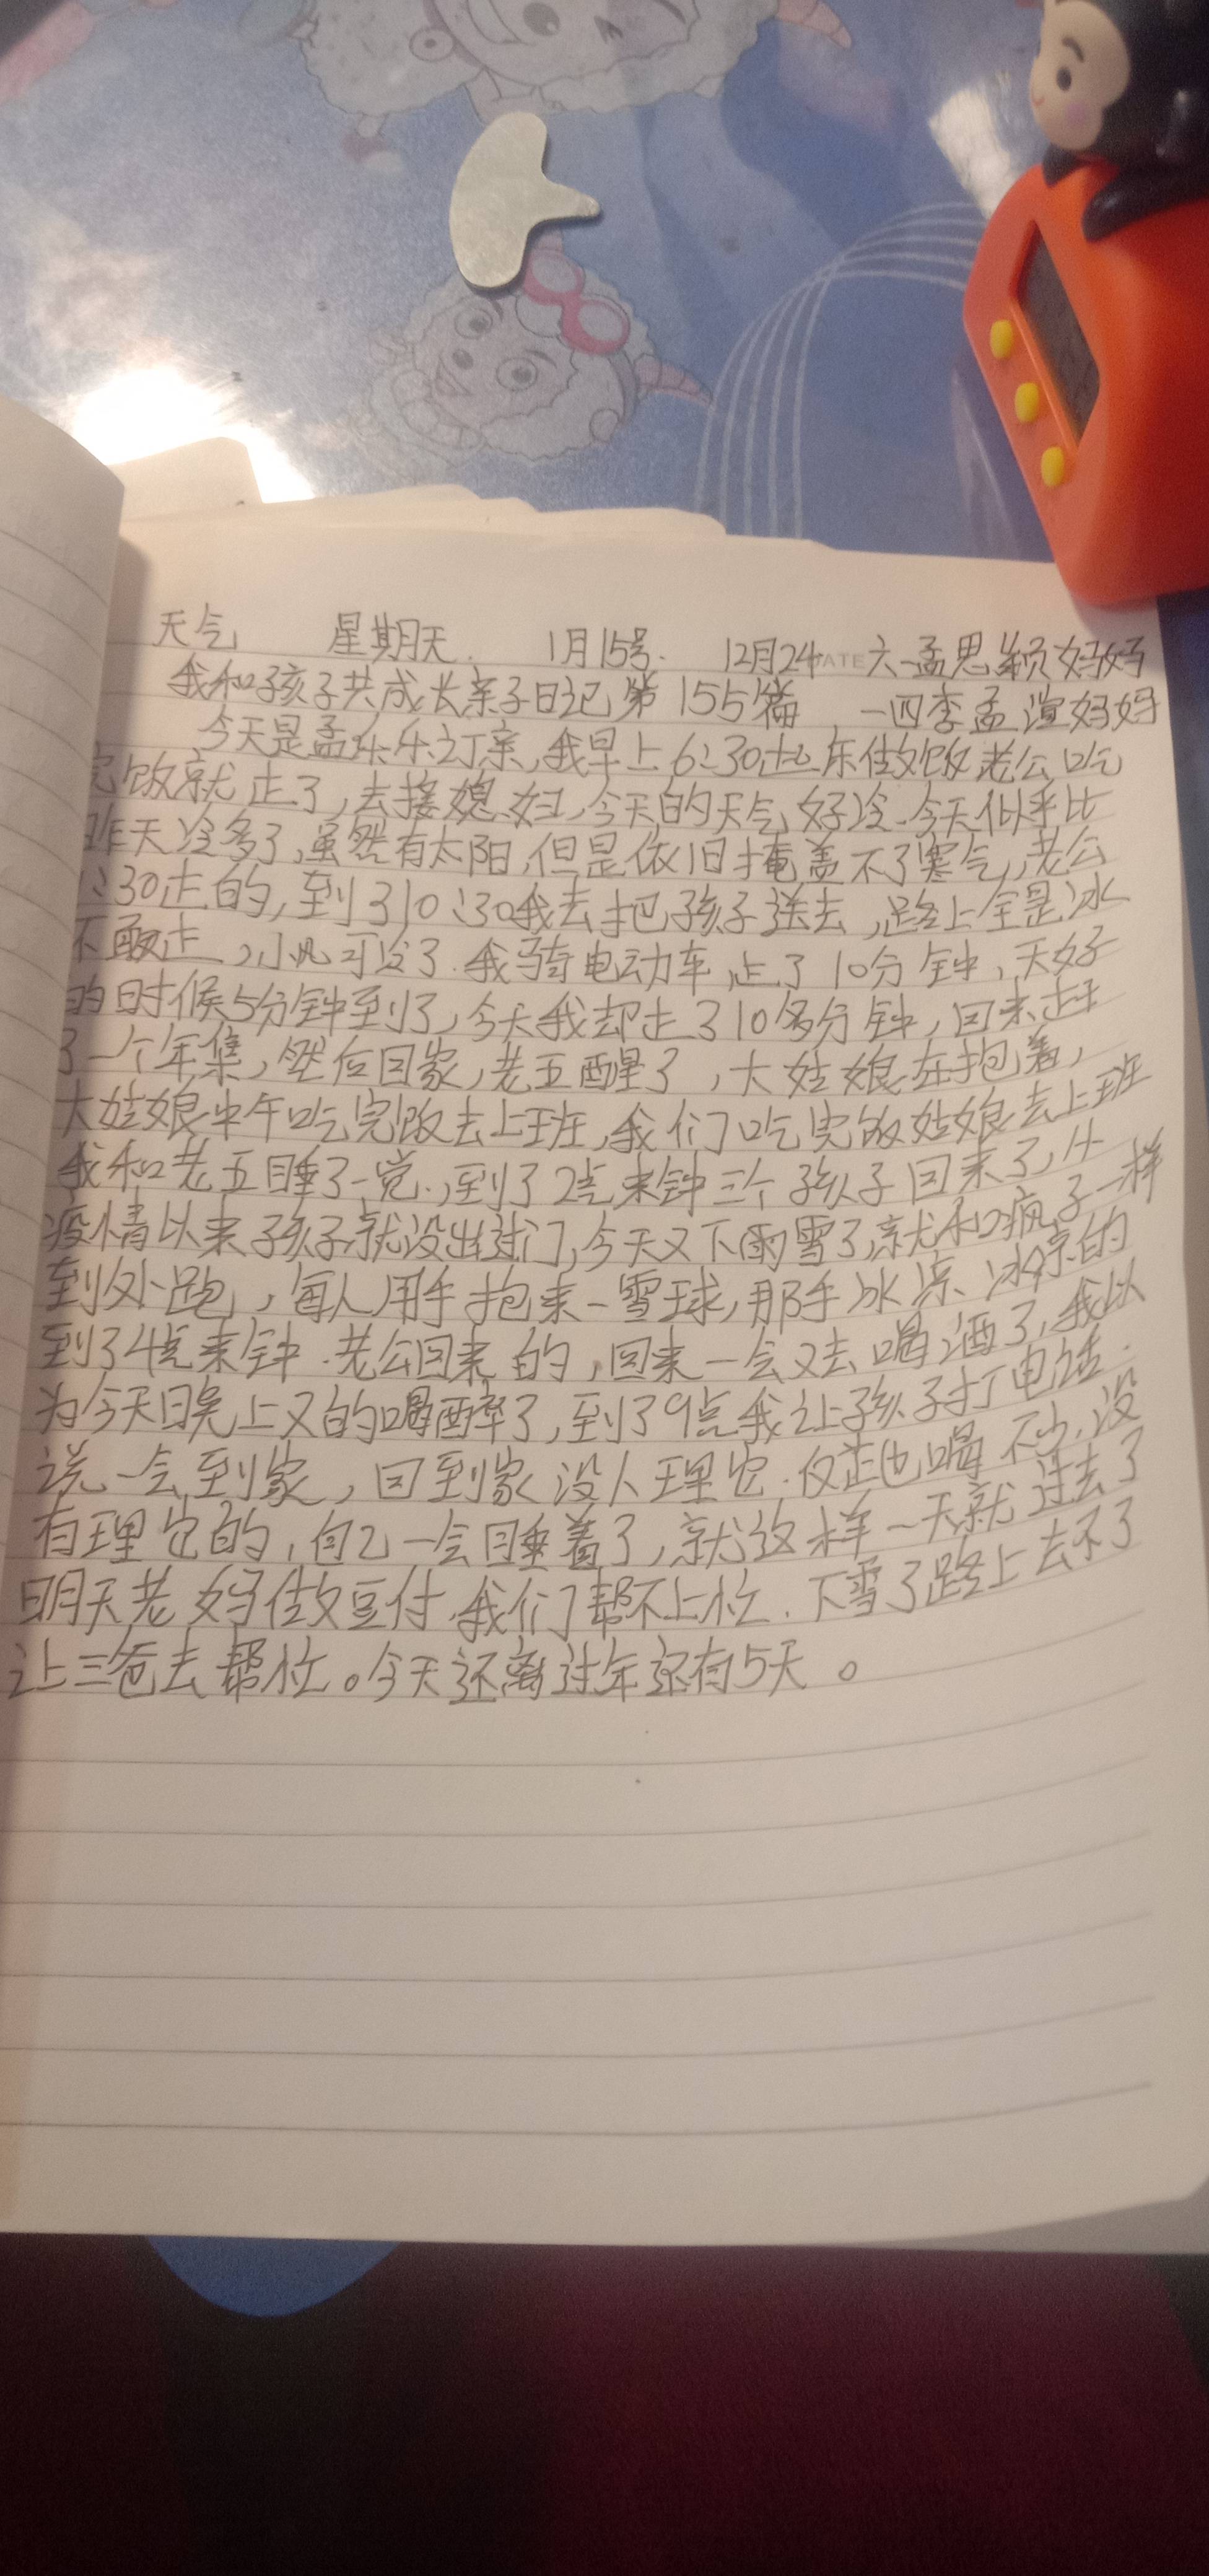 天气 星期天. 1月15号. 12月24 DATE 六一孟思颖妈妈
我和孩子共成长亲子日记第155篇, 一四李孟渲妈妈
今天是孟乐乐订亲,我早上6:30起来做饭老公吃
完饭就走了,去接媳妇,今天的天气好冷.今天似乎比
昨天冷多了,虽然有太阳,但是依旧掩盖不了寒气,老公
:30走的,到了10:30我去把孩子送去,路上全是冰
不敢走,小心可没了.我骑电动车走了10分钟,天好
的时候5分钟到了,今天我却走了10多分钟,回来赶
了一个年集,然后回家,老五醒了,大姑娘在抱着,
大姑娘中午吃完饭去上班,我们吃完饭姑娘去上班
我和老五睡了一觉.,到了2点来钟三个孩子回来了,
疫情以来孩子就没出过门,今天又下雨雪了,就和疯子一样
到处跑,每人用手抱来一雪球,那手冰凉冰凉的
到了4点来钟.老公回来的,回来一会又去喝酒了,我以
为今天晚上又的喝醉了,到了9点我让孩子打电话.
说一会到家,回到家没人理它.仪芷也喝不少,没
有理它的,自己一会睡着了,就这样一天就过去了
明天老妈做豆付,我们帮不上忙.下雪了路上去不了
让三爸去帮忙。今天还离过年还有5天。